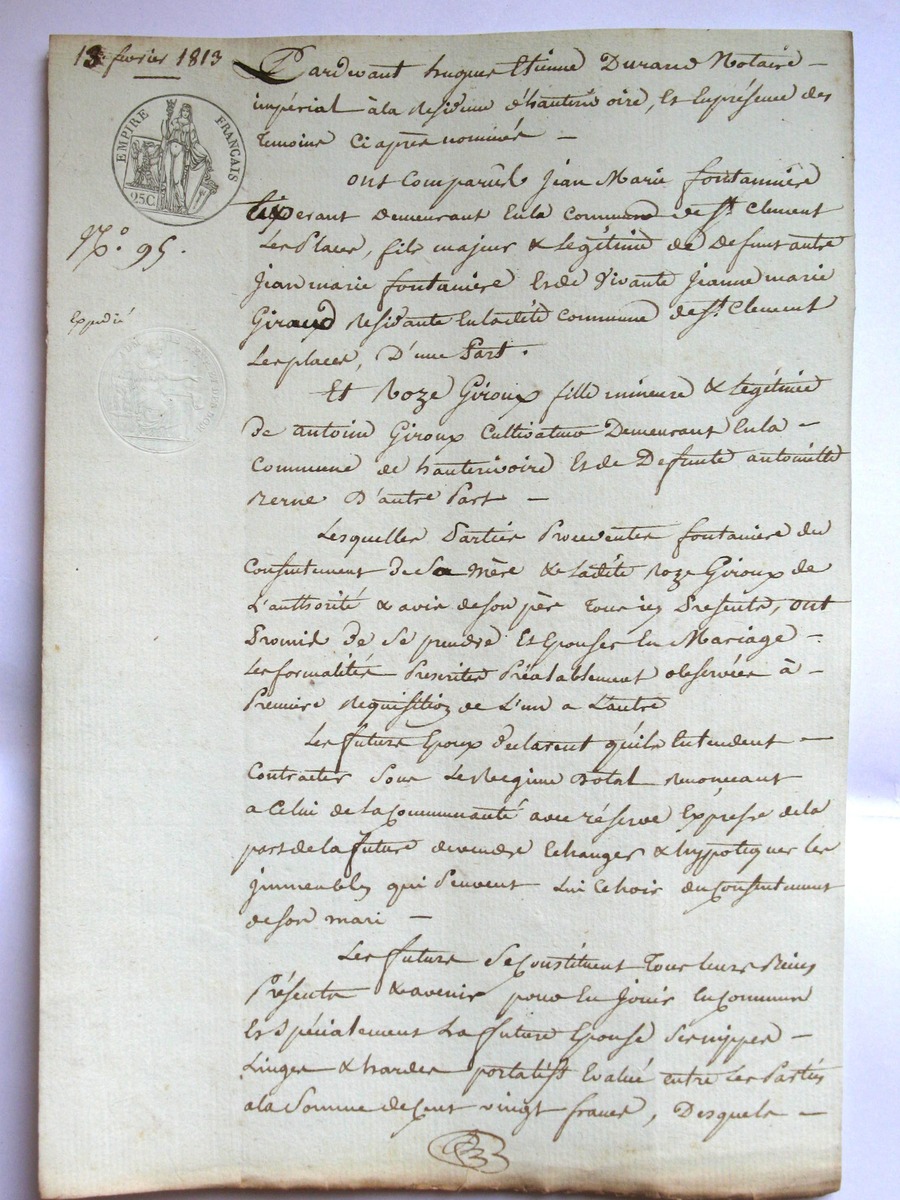 13 fevrier 1813
EMPIRE FRANÇAIS
25C
N.º 95.
Expedié
Pardevant hugues Etienne Durand Notaire
impérial à la Residence d'hauterivoire, Et En présence des
temoins Ci après nommés
ont Comparus Jean Marie fontanniere
demeurant En la Commune de St. Clement
Les Places, fils majeur & Legitime de defunt autre
Jean marie fontaniere Et de Vivante Jeanne marie
Giraud Residante En ladite Commune de St. Clement
Les places, D'une Part.
Et Roze Giroux fille mineure & Legitime
de antoine Giroux Cultivateur Demeurant En la
Commune de hauterivoire Et de Defunte antoinette
Berne D'autre Part
Lesquelles Parties Procedentes fontaniere du
Consentement de Sa mère & Ladite Roze Giroux de
L'authorité & avis de son père Tous icy Presents, ont
Promis de Se prendre Et Epouser En Mariage
Les formalités Prescrites Préalablement observées à
Premiere Requisition de L'un a L'autre
Les futurs Epoux declarent qu'ils Entendent
Contracter Sous Le Regime Dotal renonceant
a Celui de la Communauté avec réserve Expresse de la
part de la future de vendre Echanger & hypotequer les
immeubles qui Peuvent Lui Echoir du Consentement
de son mari
Les futurs Se Constituent Tous leurs Biens
Présents & avenir pour En Jouir En Commun
Et Spécialement La future Epouse Ses nippes
Linges & hardes portatifs Evalué entre Les Parties
a la Somme de Cent vingt francs, Desquels